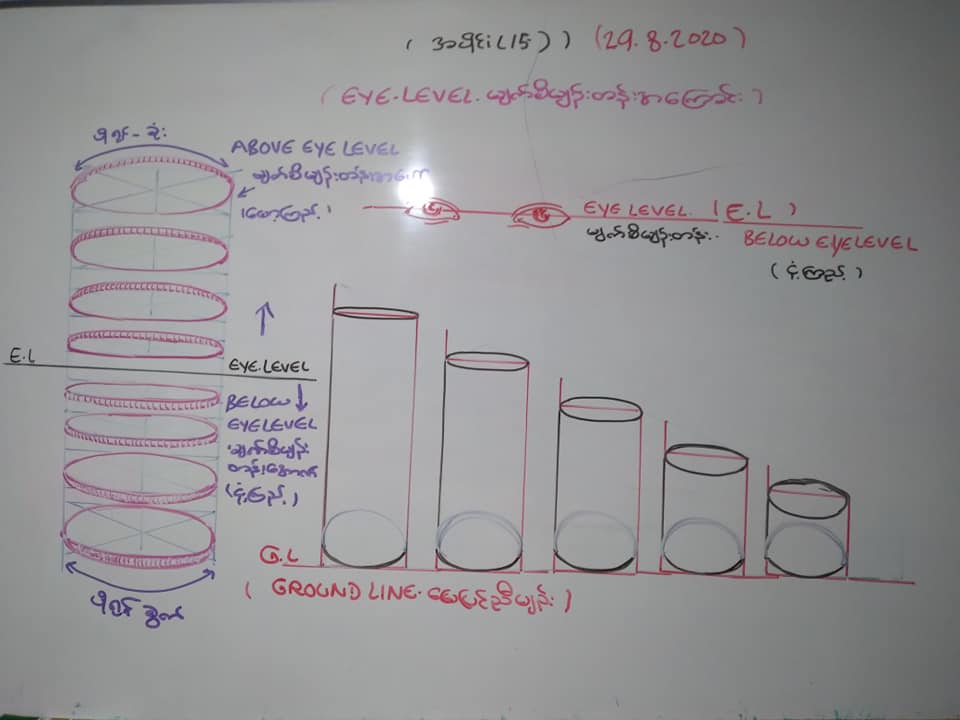 ( အပိုင်း (15) ) (29.8.2020)
( EYE.LEVEL. မျက်စိမျဉ်းတန်းအကြောင်း )
ABOVE EYE LEVEL
မျက်စိမျဉ်းတန်းအထက်
(မော့ကြည့်)
EYE LEVEL. (E.L)
မျက်စိမျဉ်းတန်း..
BELOW EYELEVEL
(ငုံ့ကြည့်)
E.L
EYE.LEVEL
BELOW
EYELEVEL
မျက်စိမျဉ်း
တန်းအောက်
(ငုံ့ကြည့်)
G.L
( GROUND LINE. မြေပြင်မျဉ်း )